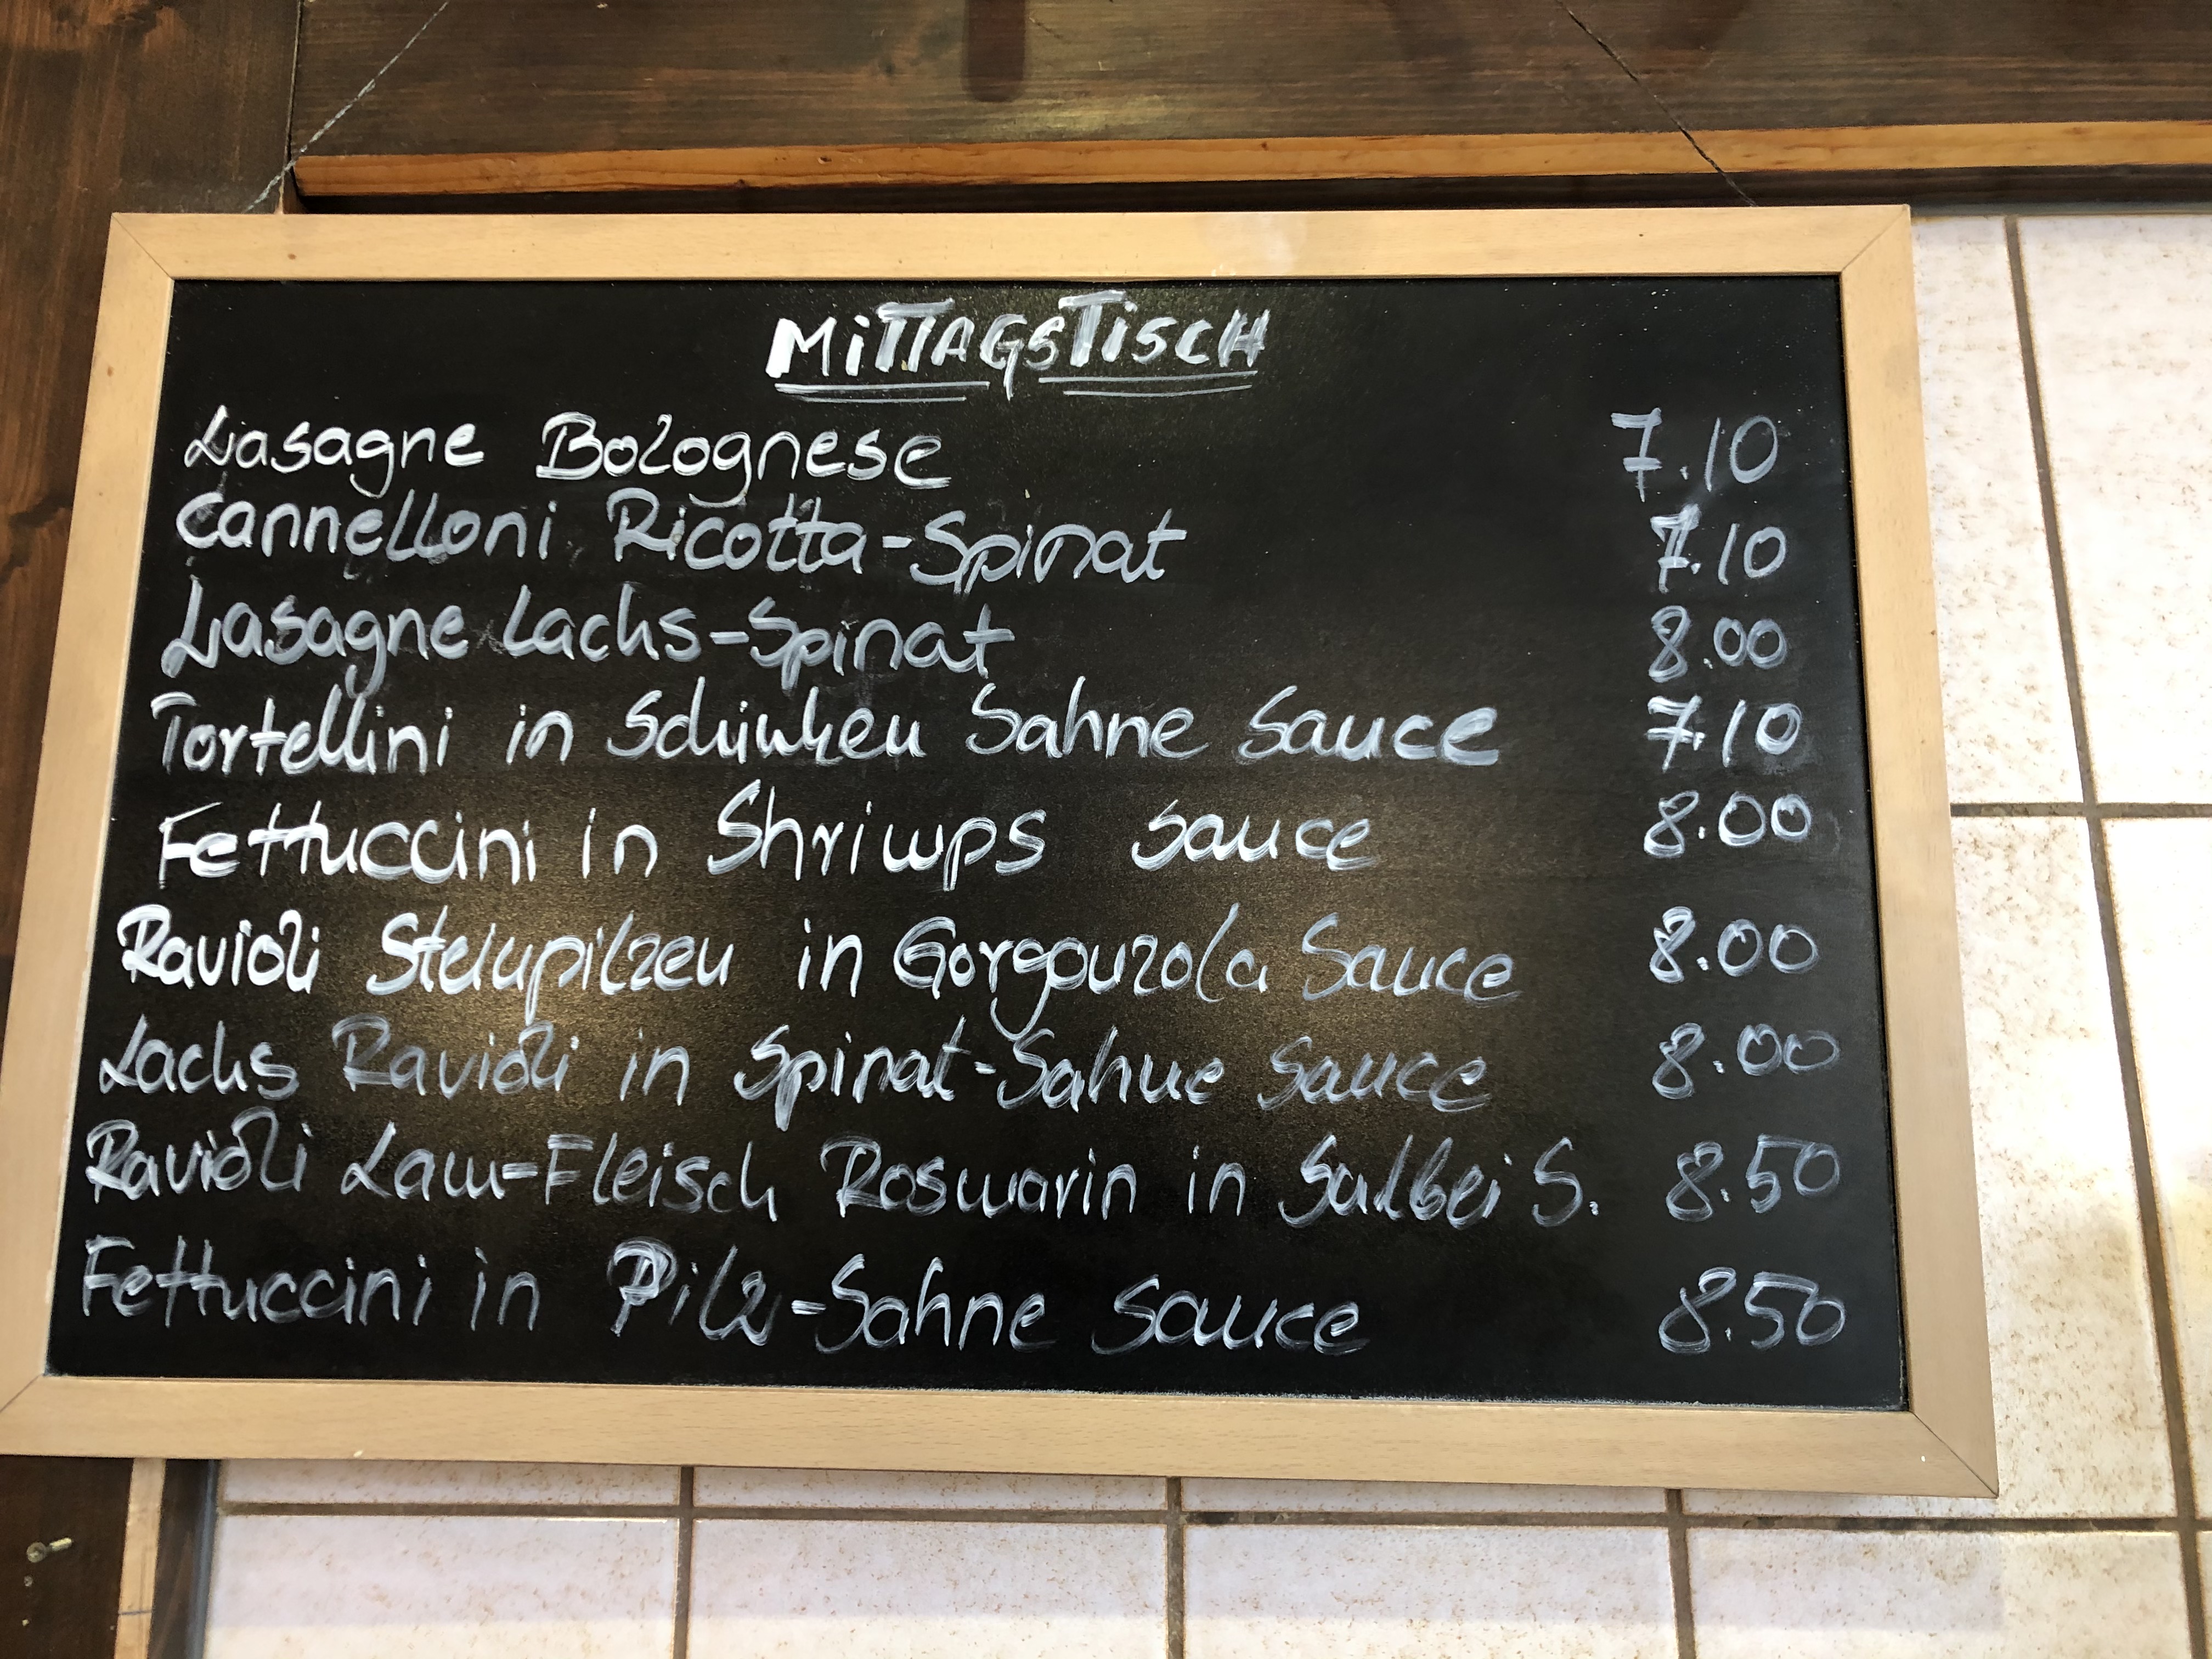 MiTTAGSTiSCH
Lasagne Bolognese 7.10
Cannelloni Ricotta-Spinat 7.10
Lasagne Lachs-Spinat 8.00
Tortellini in Schinken Sahne Sauce 7.10
Fettuccini in Shrimps Sauce 8.00
Ravioli Steinpilzen in Gorgonzola Sauce 8.00
Lachs Ravioli in Spinat-Sahne Sauce 8.00
Ravioli Lam-Fleisch Rosmarin in Salbei S. 8.50
Fettuccini in Pilz-Sahne Sauce 8.50